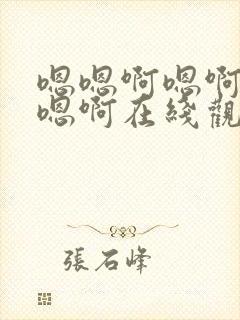 嗯嗯啊嗯啊
嗯啊在綫觀
張石峰